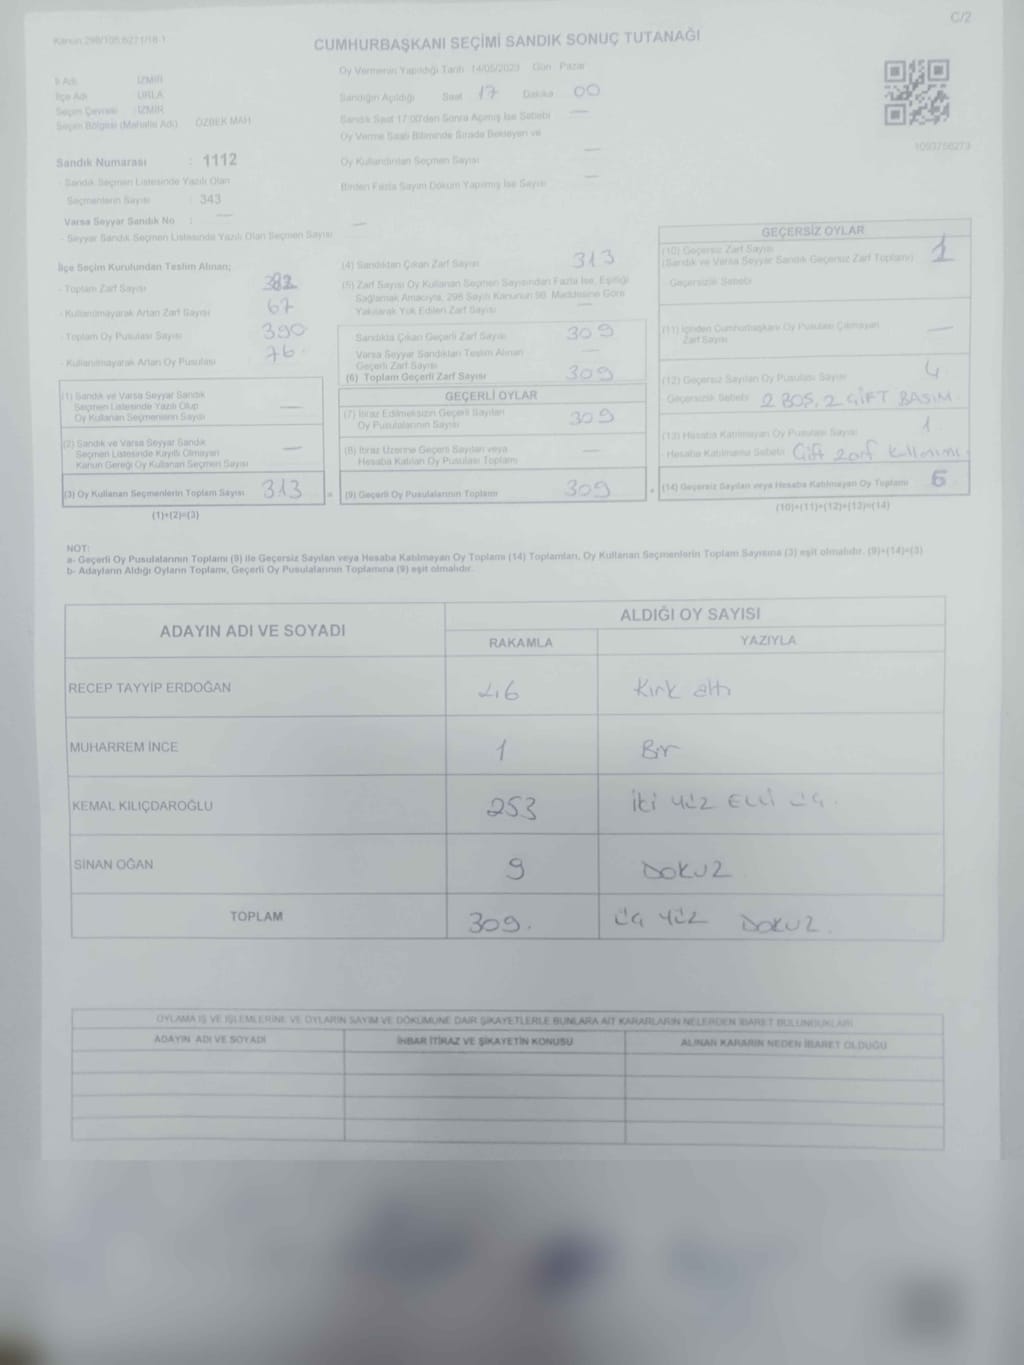 C/2
Kanun:298/105,6271/18-1
CUMHURBAŞKANI SEÇİMİ SANDIK SONUÇ TUTANAĞI
Oy Vermenin Yapıldığı Tarih 14/05/2023 Gün Pazar
İl Adı İZMİR
İlçe Adı URLA
Seçim Çevresi : İZMİR
Seçim Bölgesi (Mahalle Adı) ÖZBEK MAH
Sandığın Açıldığı Saat 17 Dakika 00
Sandık Saat 17:00'den Sonra Açılmış İse Sebebi —
Oy Verme Saati Bitiminde Sırada Bekleyen ve
Oy Kullandırılan Seçmen Sayısı —
Birden Fazla Sayım Döküm Yapılmış İse Sayısı —
1093756273
Sandık Numarası : 1112
- Sandık Seçmen Listesinde Yazılı Olan
Seçmenlerin Sayısı : 343
Varsa Seyyar Sandık No : —
- Seyyar Sandık Seçmen Listesinde Yazılı Olan Seçmen Sayısı —
İlçe Seçim Kurulundan Teslim Alınan;
- Toplam Zarf Sayısı
- Kullanılmayarak Artan Zarf Sayısı 67
- Toplam Oy Pusulası Sayısı 390
- Kullanılmayarak Artan Oy Pusulası 76
(1) Sandık ve Varsa Seyyar Sandık
Seçmen Listesinde Yazılı Olup
Oy Kullanan Seçmenlerin Sayısı —
(2) Sandık ve Varsa Seyyar Sandık
Seçmen Listesinde Kayıtlı Olmayan
Kanun Gereği Oy Kullanan Seçmen Sayısı —
(3) Oy Kullanan Seçmenlerin Toplam Sayısı 313
(1)+(2)=(3)
(4) Sandıktan Çıkan Zarf Sayısı 313
(5) Zarf Sayısı Oy Kullanan Seçmen Sayısından Fazla İse, Eşitliği
Sağlamak Amacıyla, 298 Sayılı Kanunun 98. Maddesine Göre
Yakılarak Yok Edilen Zarf Sayısı —
Sandıkta Çıkan Geçerli Zarf Sayısı 309
Varsa Seyyar Sandıktan Teslim Alınan
Geçerli Zarf Sayısı —
(6) Toplam Geçerli Zarf Sayısı 309
GEÇERLİ OYLAR
(7) İtiraz Edilmeksizin Geçerli Sayılan
Oy Pusulalarının Sayısı 309
(8) İtiraz Üzerine Geçerli Sayılan veya
Hesaba Katılan Oy Pusulası Toplamı —
= (9) Geçerli Oy Pusulalarının Toplamı 309
GEÇERSİZ OYLAR
(10) Geçersiz Zarf Sayısı
(Sandık ve Varsa Seyyar Sandık Geçersiz Zarf Toplamı) 1
- Geçersizlik Sebebi
(11) İçinden Cumhurbaşkanı Oy Pusulası Çıkmayan
Zarf Sayısı —
(12) Geçersiz Sayılan Oy Pusulası Sayısı 4
Geçersizlik Sebebi 2 BOŞ, 2 ÇİFT BASIM
(13) Hesaba Katılmayan Oy Pusulası Sayısı 1
- Hesaba Katılmama Sebebi Çift zarf kullanımı
+ (14) Geçersiz Sayılan veya Hesaba Katılmayan Oy Toplamı
(10)+(11)+(12)+(13)=(14)
NOT:
a- Geçerli Oy Pusulalarının Toplamı (9) ile Geçersiz Sayılan veya Hesaba Katılmayan Oy Toplamı (14) Toplamları, Oy Kullanan Seçmenlerin Toplam Sayısına (3) eşit olmalıdır. (9)+(14)=(3)
b- Adayların Aldığı Oyların Toplamı, Geçerli Oy Pusulalarının Toplamına (9) eşit olmalıdır.
ADAYIN ADI VE SOYADI ALDIĞI OY SAYISI
RAKAMLA YAZIYLA
RECEP TAYYİP ERDOĞAN 46 Kırk altı
MUHARREM İNCE 1 Bir
KEMAL KILIÇDAROĞLU 253 İki yüz Elli üç.
SİNAN OĞAN 9 DOKUZ
TOPLAM 309. üç yüz DOKUZ.
OYLAMA İŞ VE İŞLEMLERİNE VE OYLARIN SAYIM VE DÖKÜMÜNE DAİR ŞİKAYETLERLE BUNLARA AİT KARARLARIN NELERDEN İBARET BULUNDUKLARI
ADAYIN ADI VE SOYADI İHBAR İTİRAZ VE ŞİKAYETİN KONUSU ALINAN KARARIN NEDEN İBARET OLDUĞU